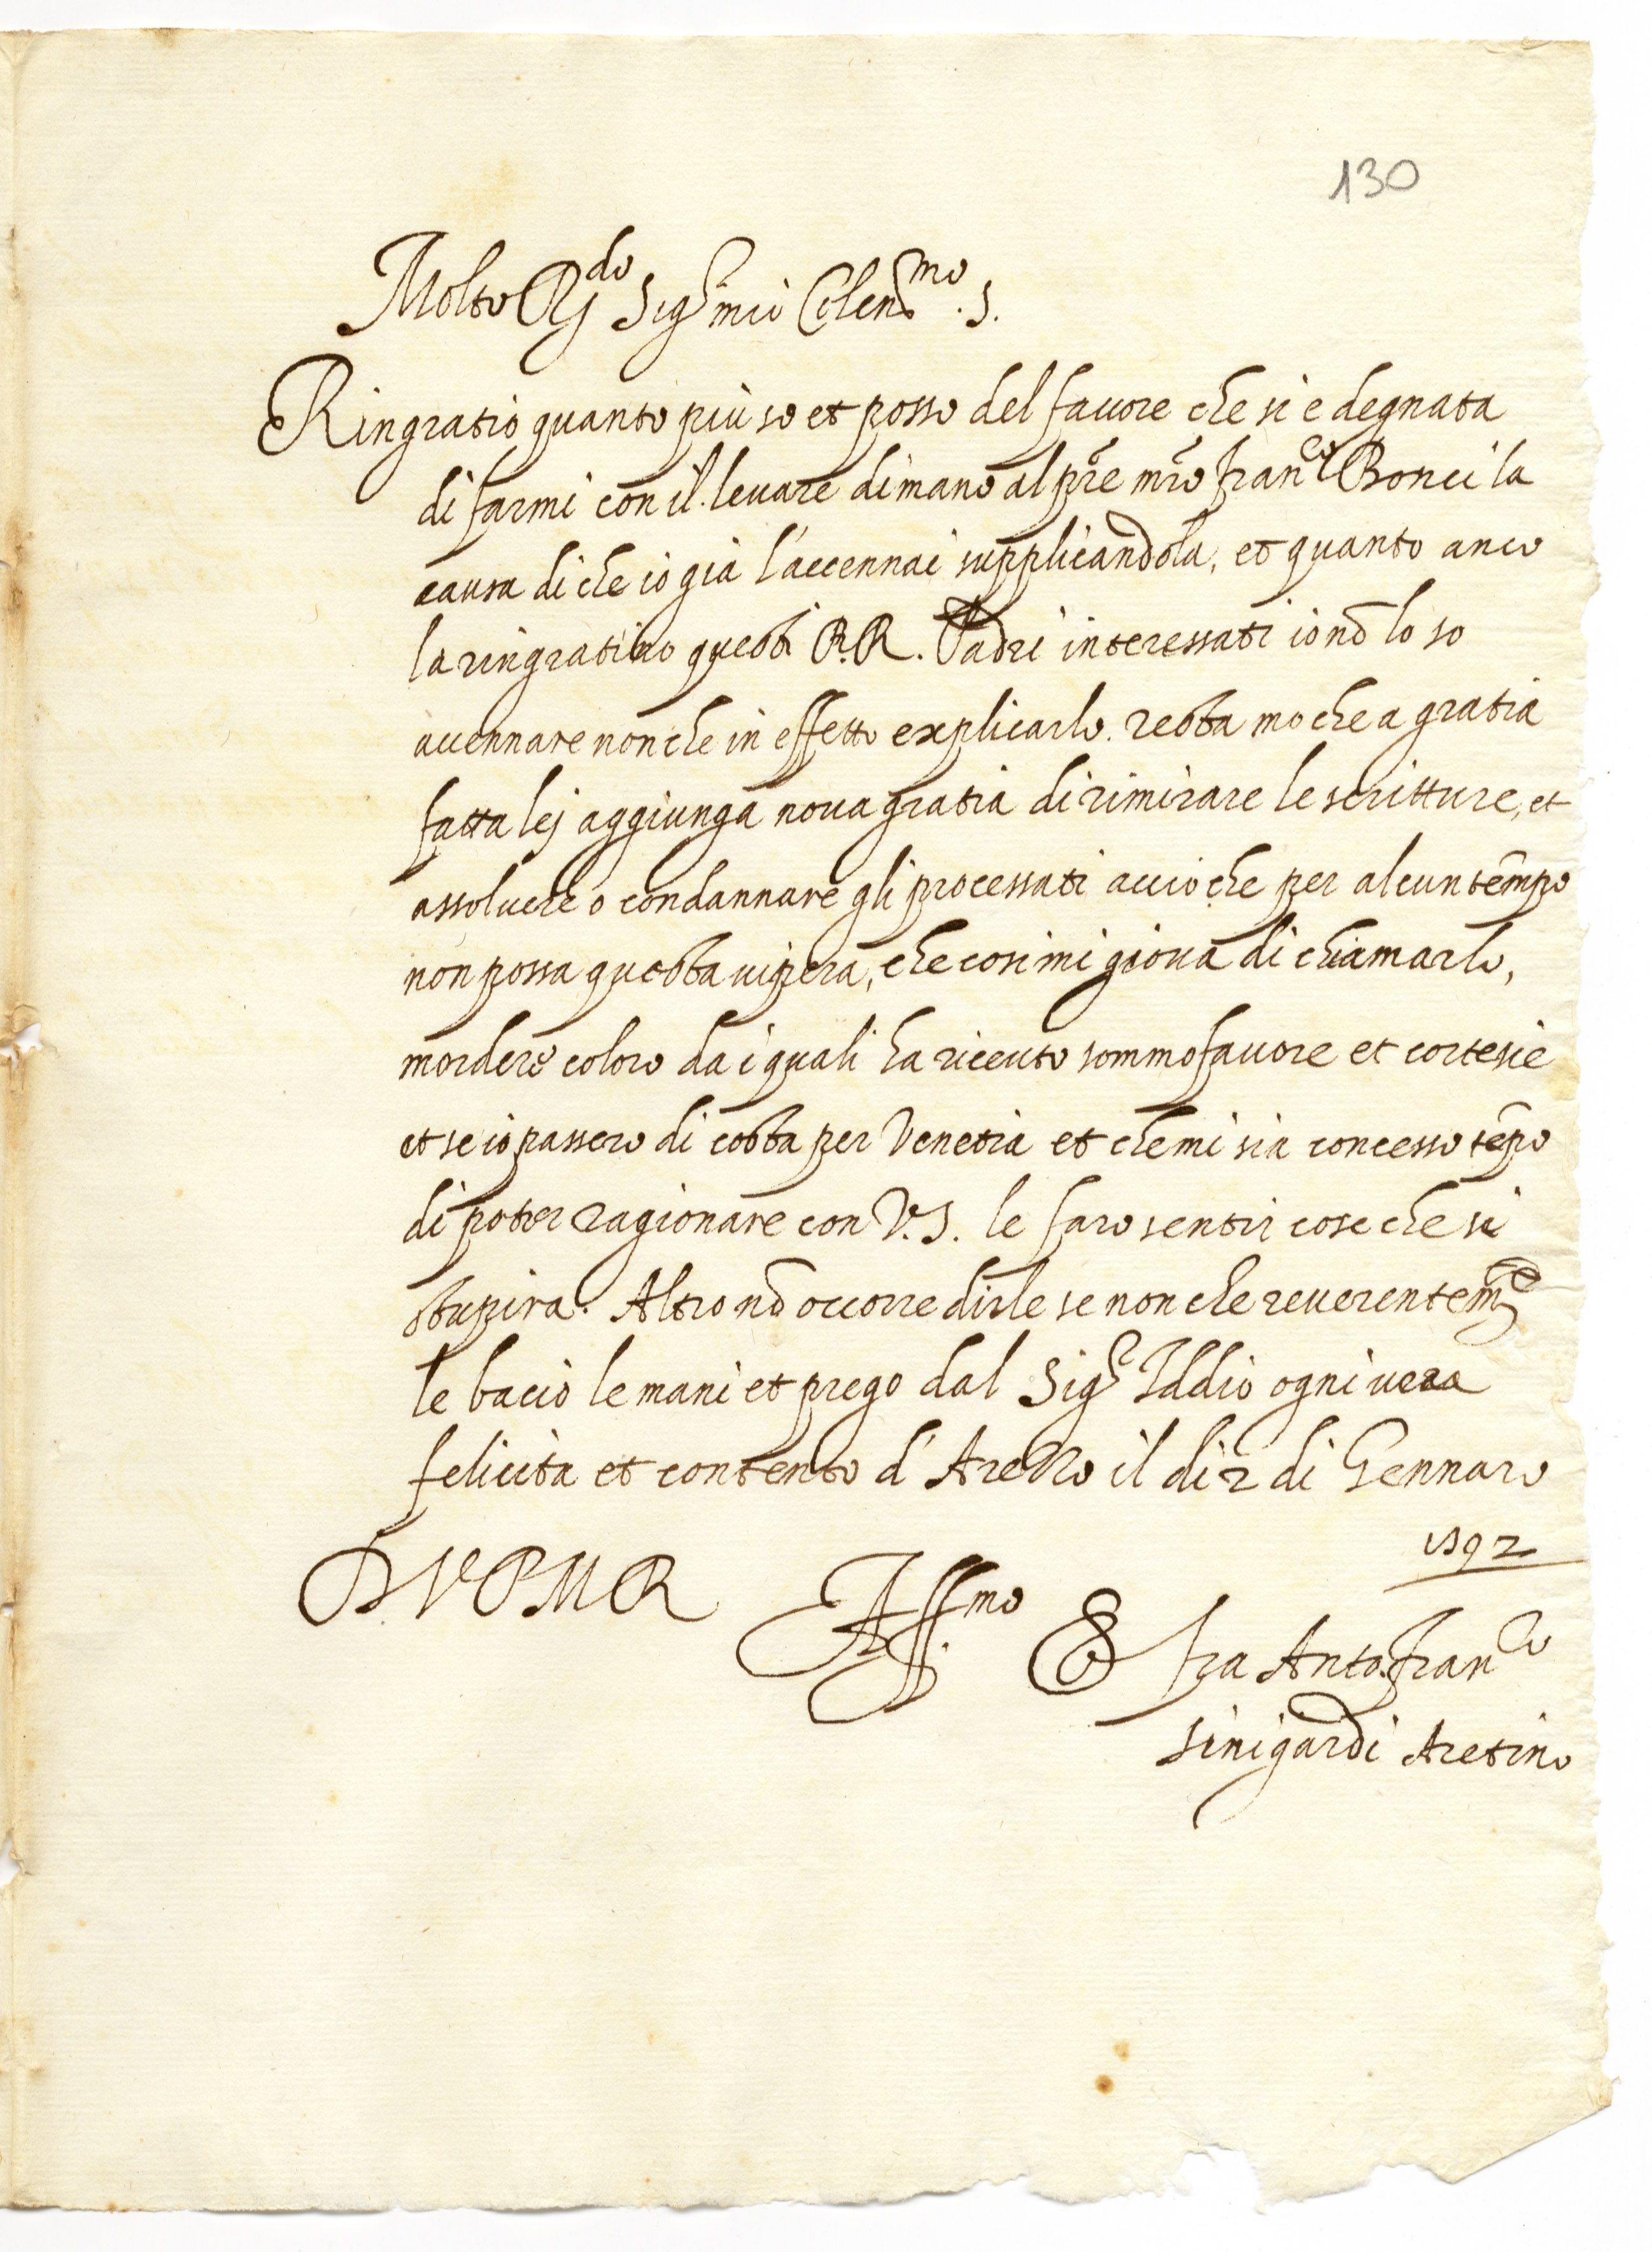 130
Molto R.do Sig.r mio Colen.mo S.
Ringratio quanto più so et posso del fauore che si è degnata
di farmi con il leuare di mano al p̃re mr̃o fran.co Bonci la
causa di che io già l'accennai supplicandola, et quanto anco
la ringratino questi R.R. Padri interessati io nõ lo so
accennare non che in effetto explicarlo. resta mo che a gratia
fatta lej aggiunga noua gratia di rimirare le scritture, et
assoluere o condannare gli processati accio che per alcun tẽmpo
non possa questa uipera, che cosi mi gioua di chiamarlo,
mordere coloro da i quali ha riceuto sommo fauore et cortesie
et se io passero di costa per Venetia et che mi sia concesso tẽpo
di poter ragionare con V.S. le faro sentir cose che si
stupira. Altro nõ occorre dirle se non che reuerentem.e
le bacio le mani et prego dal Sig.r Iddio ogni uera
felicita et contento d'Arezzo il di 2 di Gennaro
1592
D V P M R Aff.mo S fra Anto. fran.co
Sinigardi Aretino